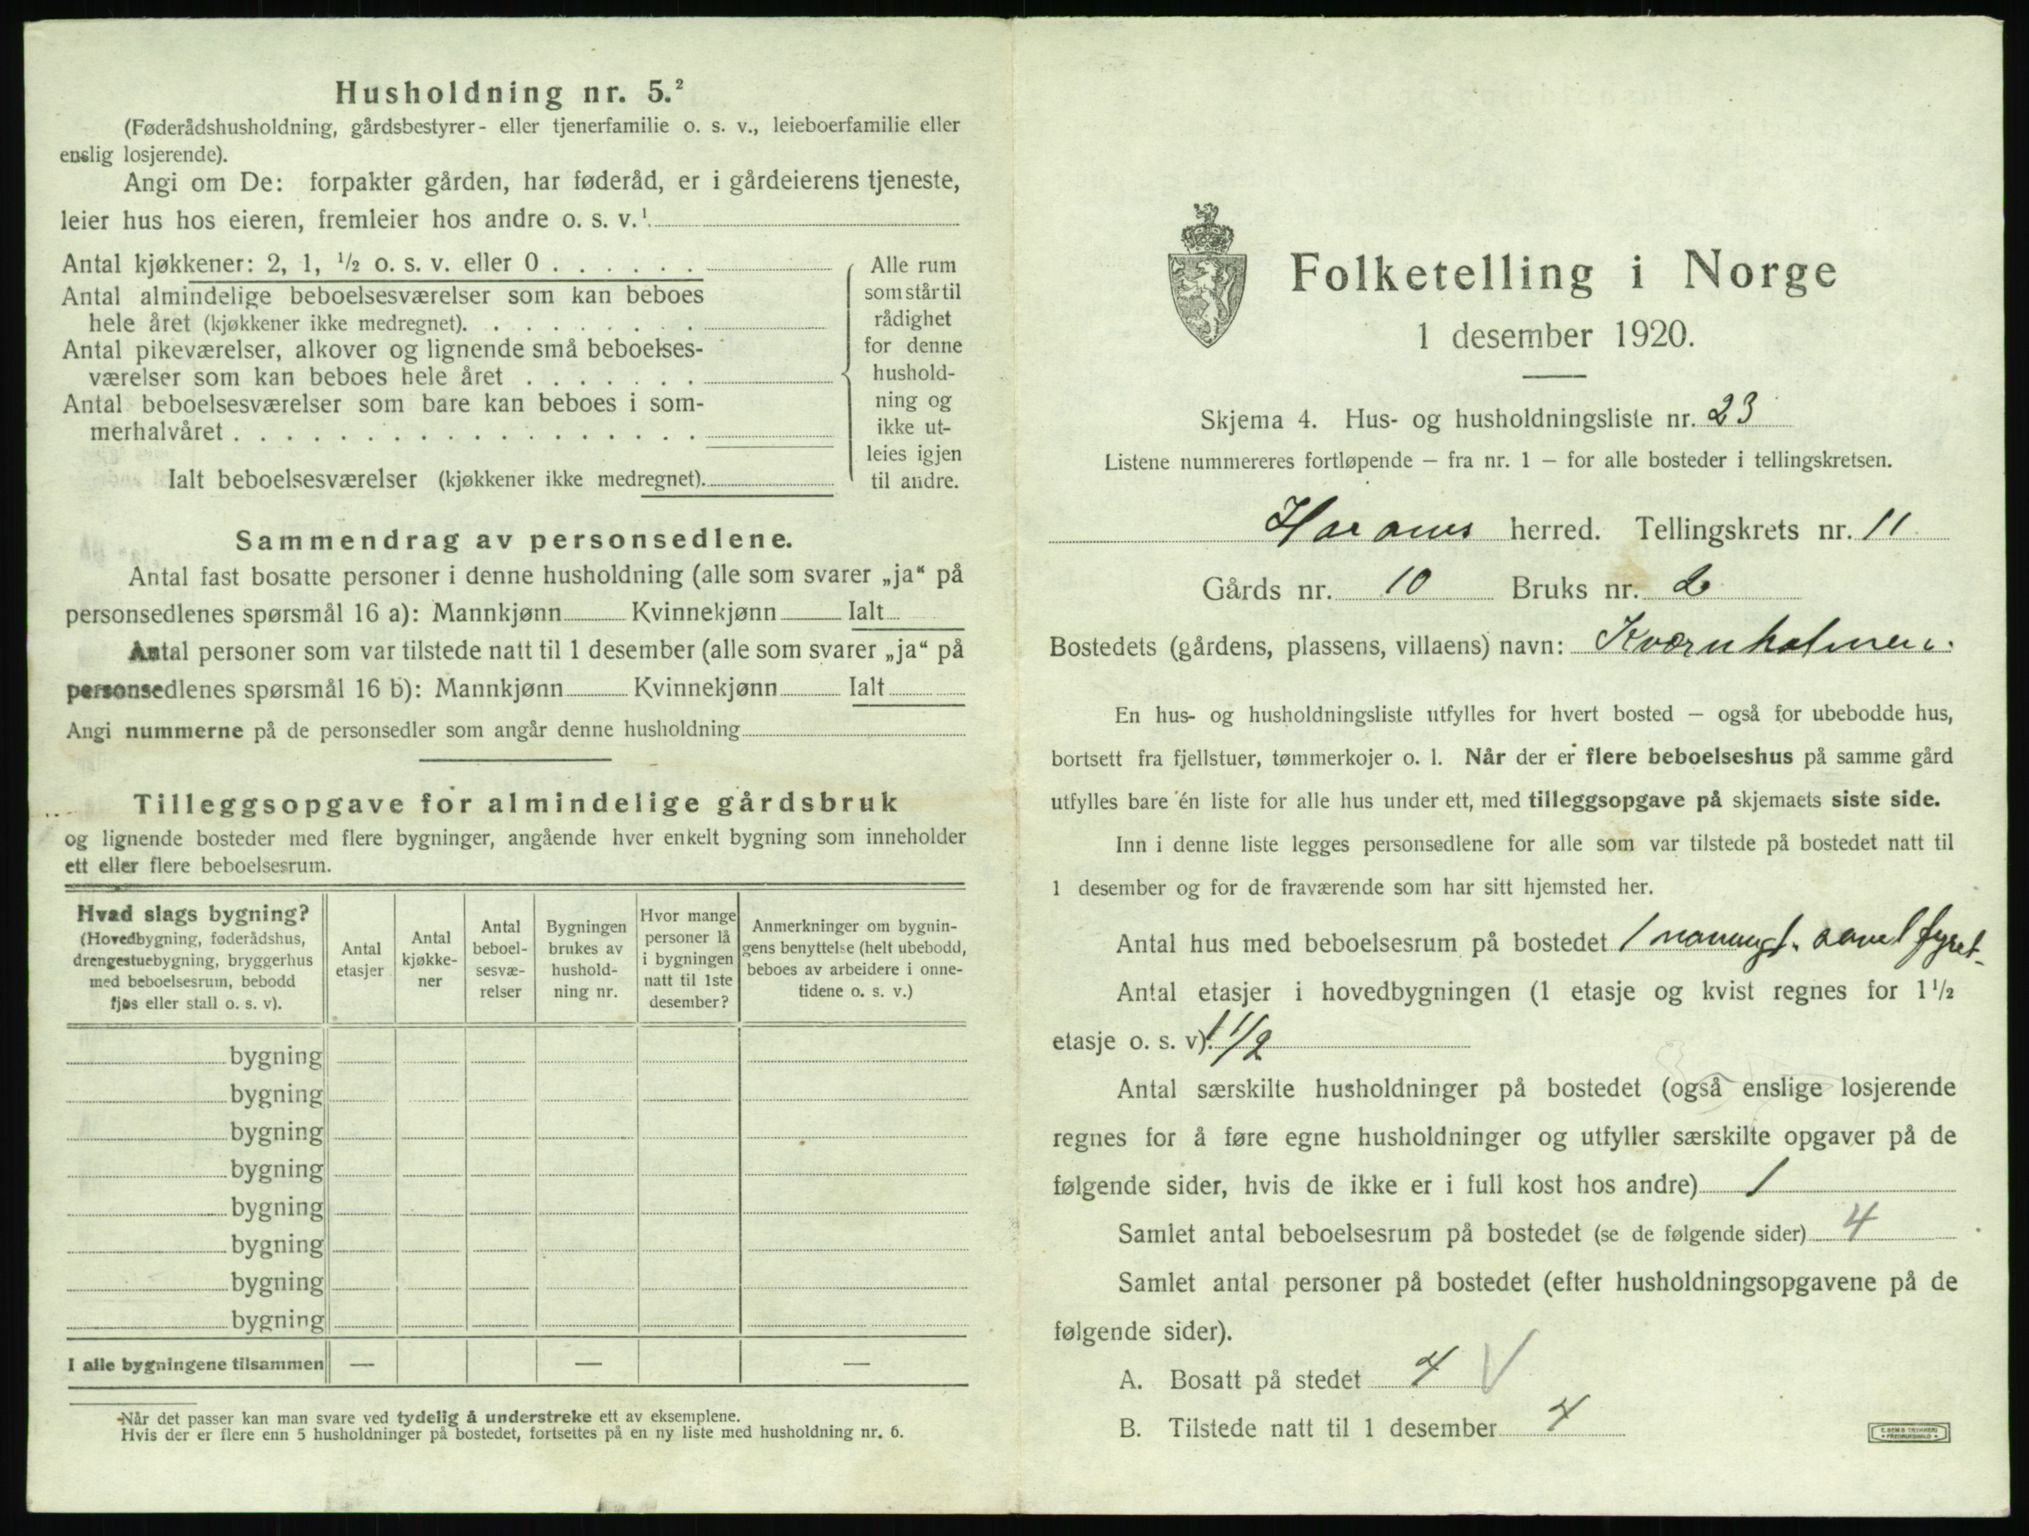 Husholdning nr. 5.²
(Føderådshusholdning, gårdsbestyrer- eller tjenerfamilie o. s. v., leieboerfamilie eller
enslig losjerende).
Angi om De: forpakter gården, har føderåd, er i gårdeierens tjeneste,
leier hus hos eieren, fremleier hos andre o. s. v.¹
Antal kjøkkener: 2, 1, ½ o. s. v. eller 0 . . . . . .
Antal almindelige beboelsesværelser som kan beboes
hele året (kjøkkener ikke medregnet). . . . . . . . .
Antal pikeværelser, alkover og lignende små beboelses-
værelser som kan beboes hele året . . . . . . .
Antal beboelsesværelser som bare kan beboes i som-
merhalvåret . . . . . . . . . . . . . . . . . .
Ialt beboelsesværelser (kjøkkener ikke medregnet).
Alle rum
som står til
rådighet
for denne
hushold-
ning og
ikke ut-
leies igjen
til andre.
Sammendrag av personsedlene.
Antal fast bosatte personer i denne husholdning (alle som svarer „ja“ på
personsedlenes spørsmål 16 a): Mannkjønn Kvinnekjønn Ialt
Antal personer som var tilstede natt til 1 desember (alle som svarer „ja“ på
personsedlenes spørsmål 16 b): Mannkjønn Kvinnekjønn Ialt
Angi nummerne på de personsedler som angår denne husholdning
Tilleggsopgave for almindelige gårdsbruk
og lignende bosteder med flere bygninger, angående hver enkelt bygning som inneholder
ett eller flere beboelsesrum.
Hvad slags bygning?
(Hovedbygning, føderådshus,
drengestuebygning, bryggerhus
med beboelsesrum, bebodd
fjøs eller stall o. s. v).
Antal
etasjer
Antal
kjøkke-
ner
Antal
beboel-
sesvæ-
relser
Bygningen
brukes av
hushold-
ning nr.
Hvor mange
personer lå
i bygningen
natt til 1ste
desember?
Anmerkninger om bygnin-
gens benyttelse (helt ubebodd,
beboes av arbeidere i onne-
tidene o. s. v.)
bygning
bygning
bygning
bygning
bygning
bygning
bygning
bygning
I alle bygningene tilsammen — — —
Når det passer kan man svare ved tydelig å understreke ett av eksemplene.
Hvis der er flere enn 5 husholdninger på bostedet, fortsettes på en ny liste med husholdning nr. 6.
Folketelling i Norge
1 desember 1920.
Skjema 4. Hus- og husholdningsliste nr. 23
Listene nummereres fortløpende – fra nr. 1 – for alle bosteder i tellingskretsen.
Harams herred. Tellingskrets nr. 11
Gårds nr. 10 Bruks nr. 2
Bostedets (gårdens, plassens, villaens) navn: Kværnholmen
En hus- og husholdningsliste utfylles for hvert bosted – også for ubebodde hus,
bortsett fra fjellstuer, tømmerkojer o. l. Når der er flere beboelseshus på samme gård
utfylles bare én liste for alle hus under ett, med tilleggsopgave på skjemaets siste side.
Inn i denne liste legges personsedlene for alle som var tilstede på bostedet natt til
1 desember og for de fraværende som har sitt hjemsted her.
Antal hus med beboelsesrum på bostedet 1 fyret
Antal etasjer i hovedbygningen (1 etasje og kvist regnes for 1½
etasje o. s. v). 1½
Antal særskilte husholdninger på bostedet (også enslige losjerende
regnes for å føre egne husholdninger og utfyller særskilte opgaver på de
følgende sider, hvis de ikke er i full kost hos andre) 1
Samlet antal beboelsesrum på bostedet (se de følgende sider) 4
Samlet antal personer på bostedet (efter husholdningsopgavene på de
følgende sider).
A. Bosatt på stedet 4 V
B. Tilstede natt til 1 desember 4